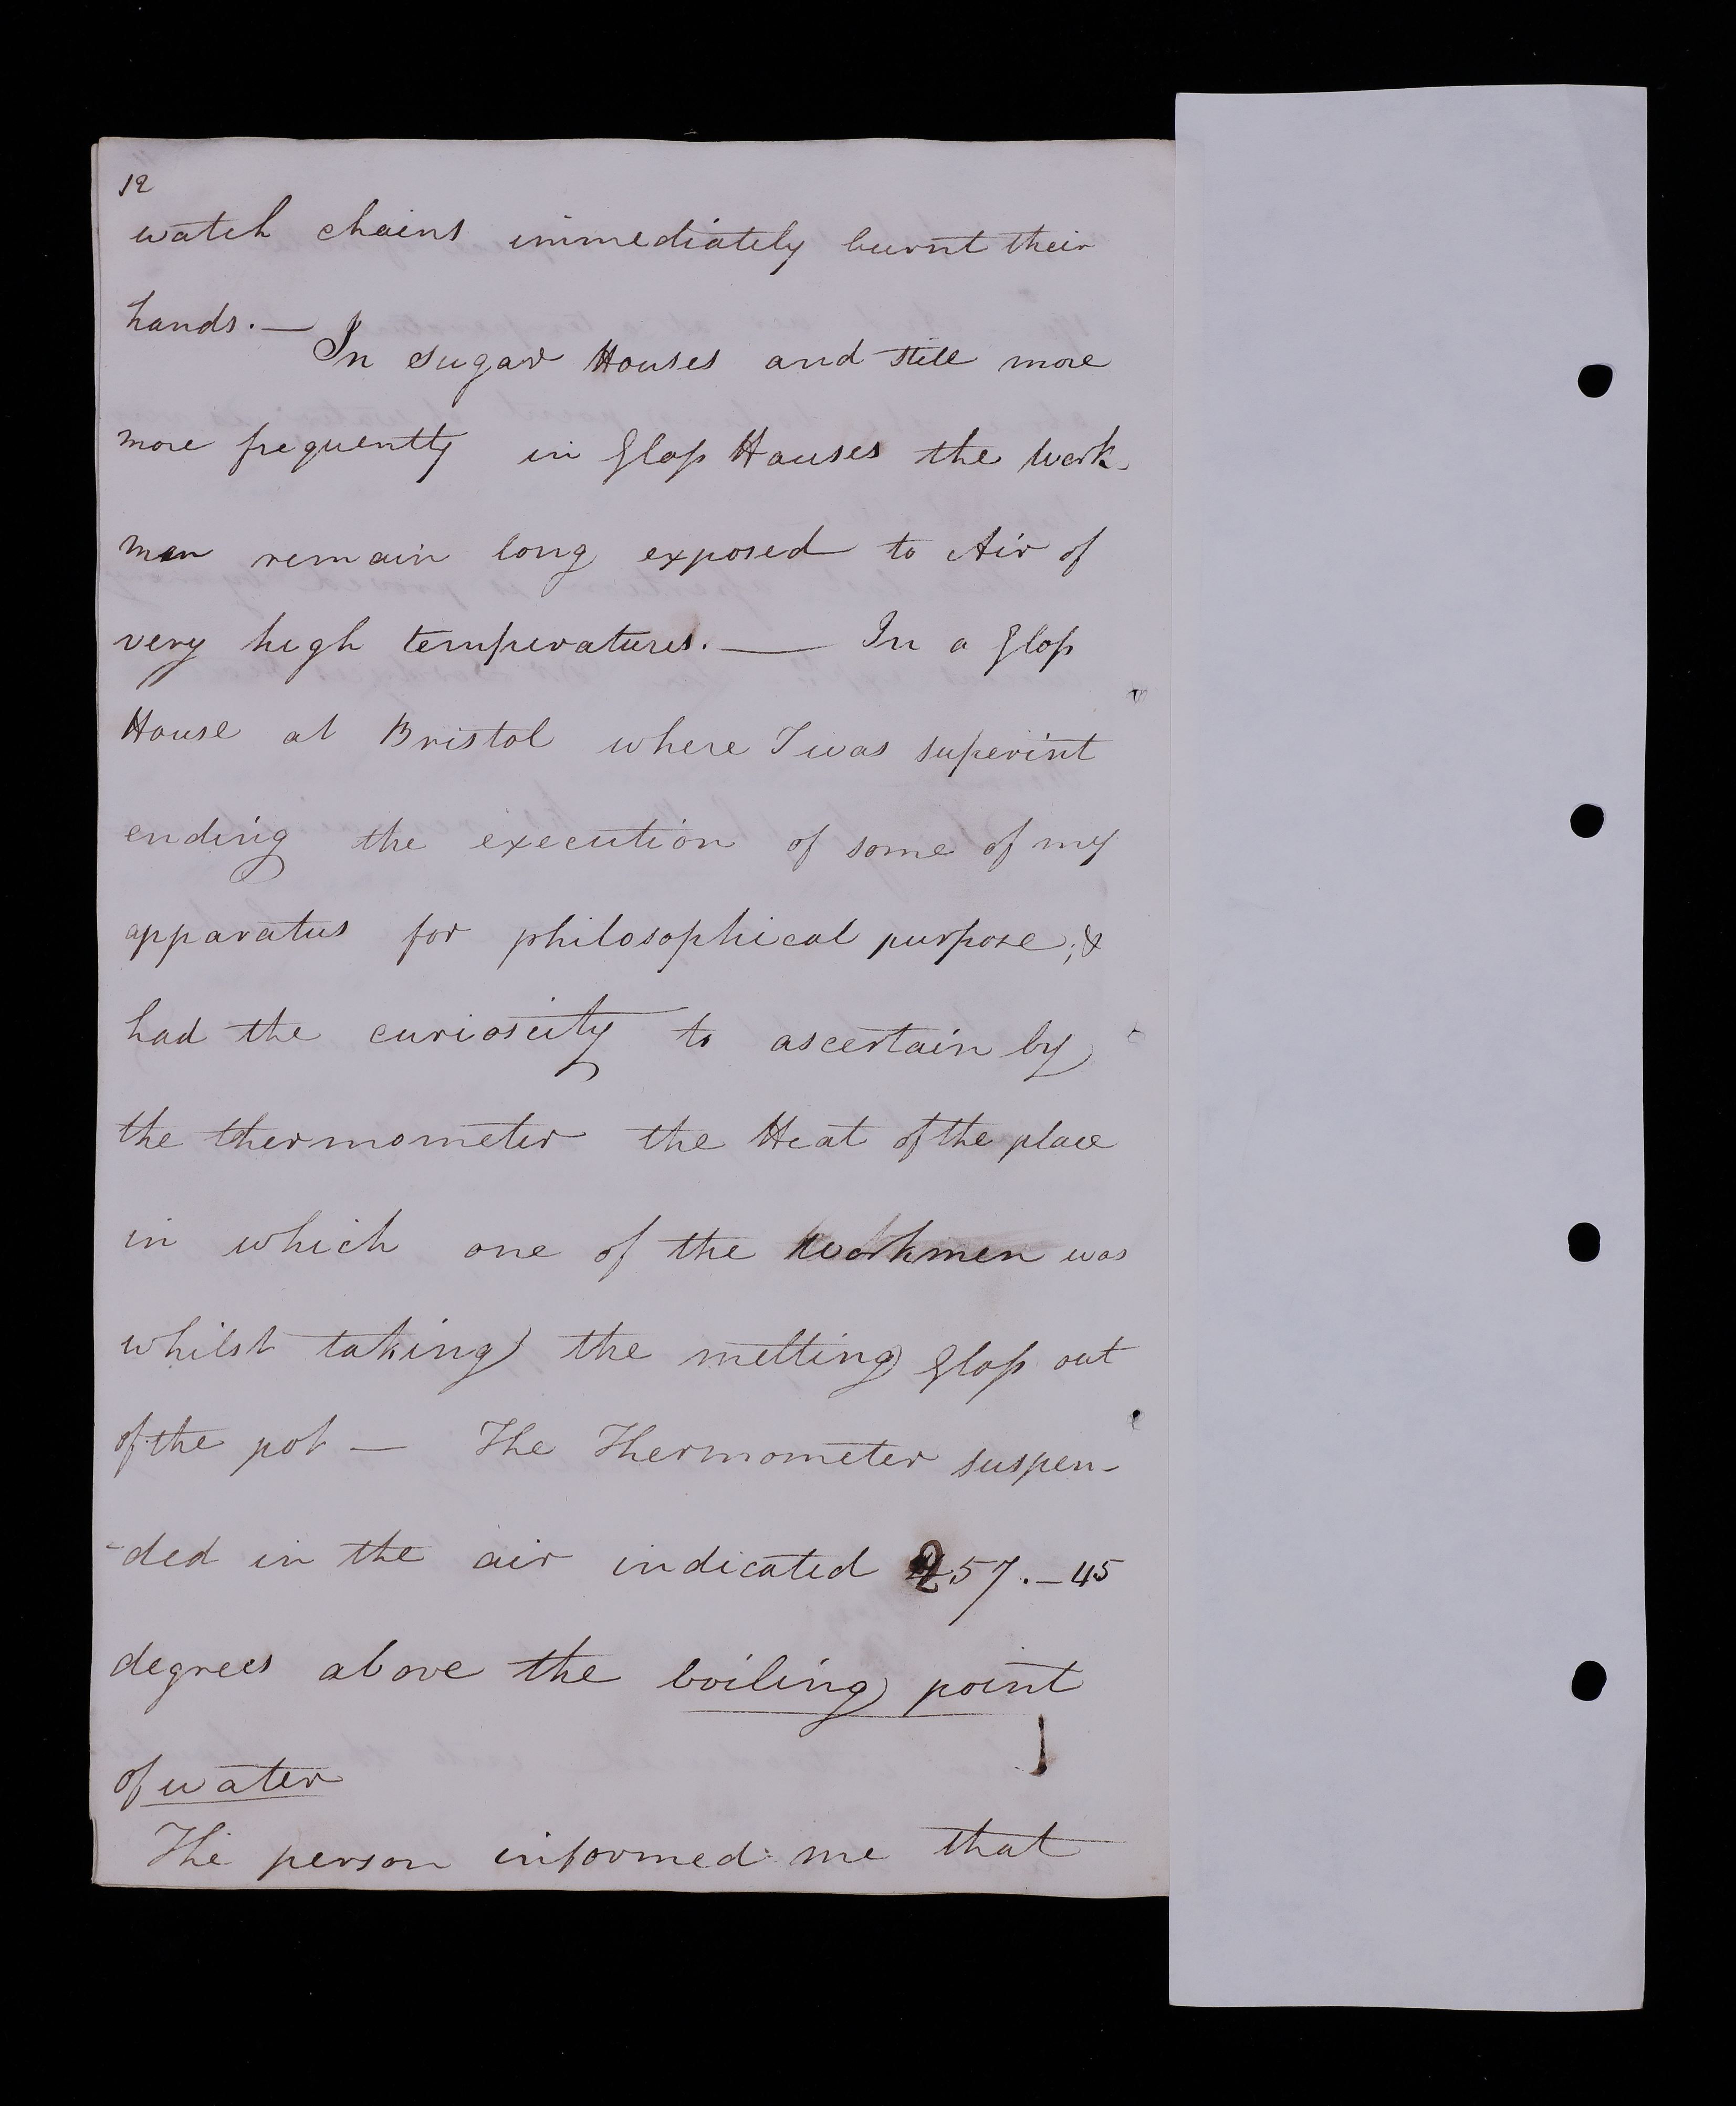 12
watch chains immediately burnt their
hands. —
In sugar Houses and still more
more frequently in Glass Houses the work-
men remain long exposed to Air of
very high temperatures. — In a Glass
House at Bristol where I was superint
ending the execution of some of my
apparatus for philosophical purpose; &
had the curiosity to ascertain by
the thermometer the Heat of the place
in which one of the workmen was
whilst taking the melting Glass out
of the pot — The Thermometer suspen-
-ded in the air indicated 257. — 45
degrees above the boiling point
of water
The person informed me that